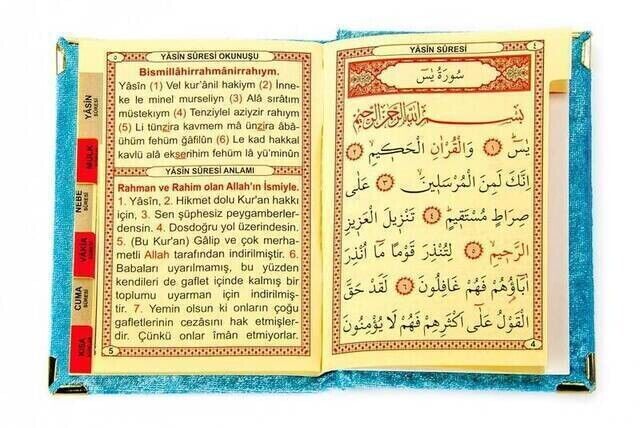 ٤
YÂSİN SÛRESİ
سُورَةُ يٰسٓ
بِسْمِ اللّٰهِ الرَّحْمٰنِ الرَّحِيمِ
يٰسٓ ﴿١﴾ وَالْقُرْاٰنِ الْحَكِيمِ ﴿٢﴾
اِنَّكَ لَمِنَ الْمُرْسَلِينَ ﴿٣﴾ عَلٰى
صِرَاطٍ مُسْتَقِيمٍ ﴿٤﴾ تَنْزِيلَ الْعَزِيزِ
الرَّحِيمِ ﴿٥﴾ لِتُنْذِرَ قَوْمًا مَٓا اُنْذِرَ
اٰبَٓاؤُهُمْ فَهُمْ غَافِلُونَ ﴿٦﴾ لَقَدْ حَقَّ
الْقَوْلُ عَلٰٓى اَكْثَرِهِمْ فَهُمْ لَا يُؤْمِنُونَ
4
٥
YÂSİN SÛRESİ OKUNUŞU
Bismillâhirrahmânirrahıym.
Yâsîn (1) Vel kur'ânil hakiym (2) İnne-
ke le minel murseliyn (3) Alâ sırâtım
müstekıym (4) Tenziylel aziyzir rahıym
(5) Li tünzira kavmem mâ ünzira âbâ-
ühüm fehüm ğâfilûn (6) Le kad hakkal
kavlü alâ ekserihim fehüm lâ yü'minûn
YÂSİN SÛRESİ ANLAMI
Rahman ve Rahim olan Allah'ın İsmiyle.
1. Yâsîn, 2. Hikmet dolu Kur'an hakkı
için, 3. Sen şüphesiz peygamberler-
densin. 4. Dosdoğru yol üzerindesin.
5. (Bu Kur'an) Gâlip ve çok merha-
metli Allah tarafından indirilmiştir. 6.
Babaları uyarılmamış, bu yüzden
kendileri de gaflet içinde kalmış bir
toplumu uyarman için indirilmiş-
tir. 7. Yemin olsun ki onların çoğu
gafletlerinin cezasını hak etmişler-
dir. Çünkü onlar îmân etmiyorlar.
5
YÂSİN
SÛRESİ
MÜLK
SÛRESİ
NEBE
SÛRESİ
VÂKIA
SÛRESİ
CUMA
SÛRESİ
KISA